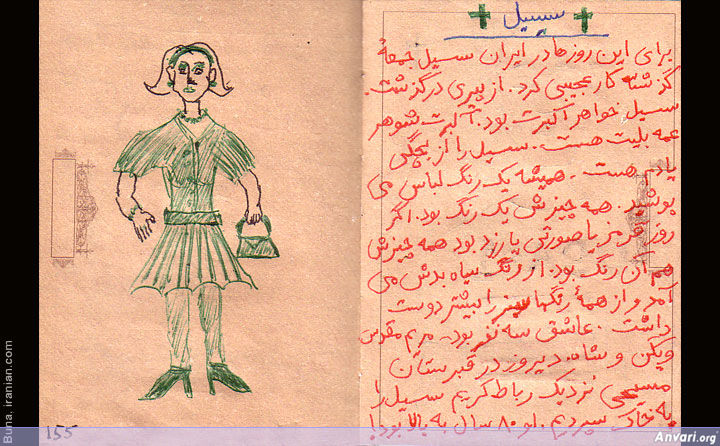 سسیل
برای این روزها در ایران سسیل جمعهٔ
گذشته کار عجیبی کرد. از پیری درگذشت.
سسیل خواهر آلبرت بود. آلبرت شوهر
عمه بلیت هست. سسیل را از بچگی
یادم هست. همیشه یک رنگ لباس می
پوشید. همه چیزش یک رنگ بود. اگر
روز قرمز یا صورتی یا زرد بود همه چیزش
هم آن رنگ بود. از رنگ سیاه بدش می
آمد و از همهٔ رنگها سبز را بیشتر دوست
داشت. عاشق سه نفر بود. مریم مقدس
ویگن و شاه. دیروز در قبرستان
مسیحی نزدیک رباط کریم سسیل را
به خاک سپردیم. او ۸۰ سال به بالا بود!
155
Buna, iranian.com
Anvari.org